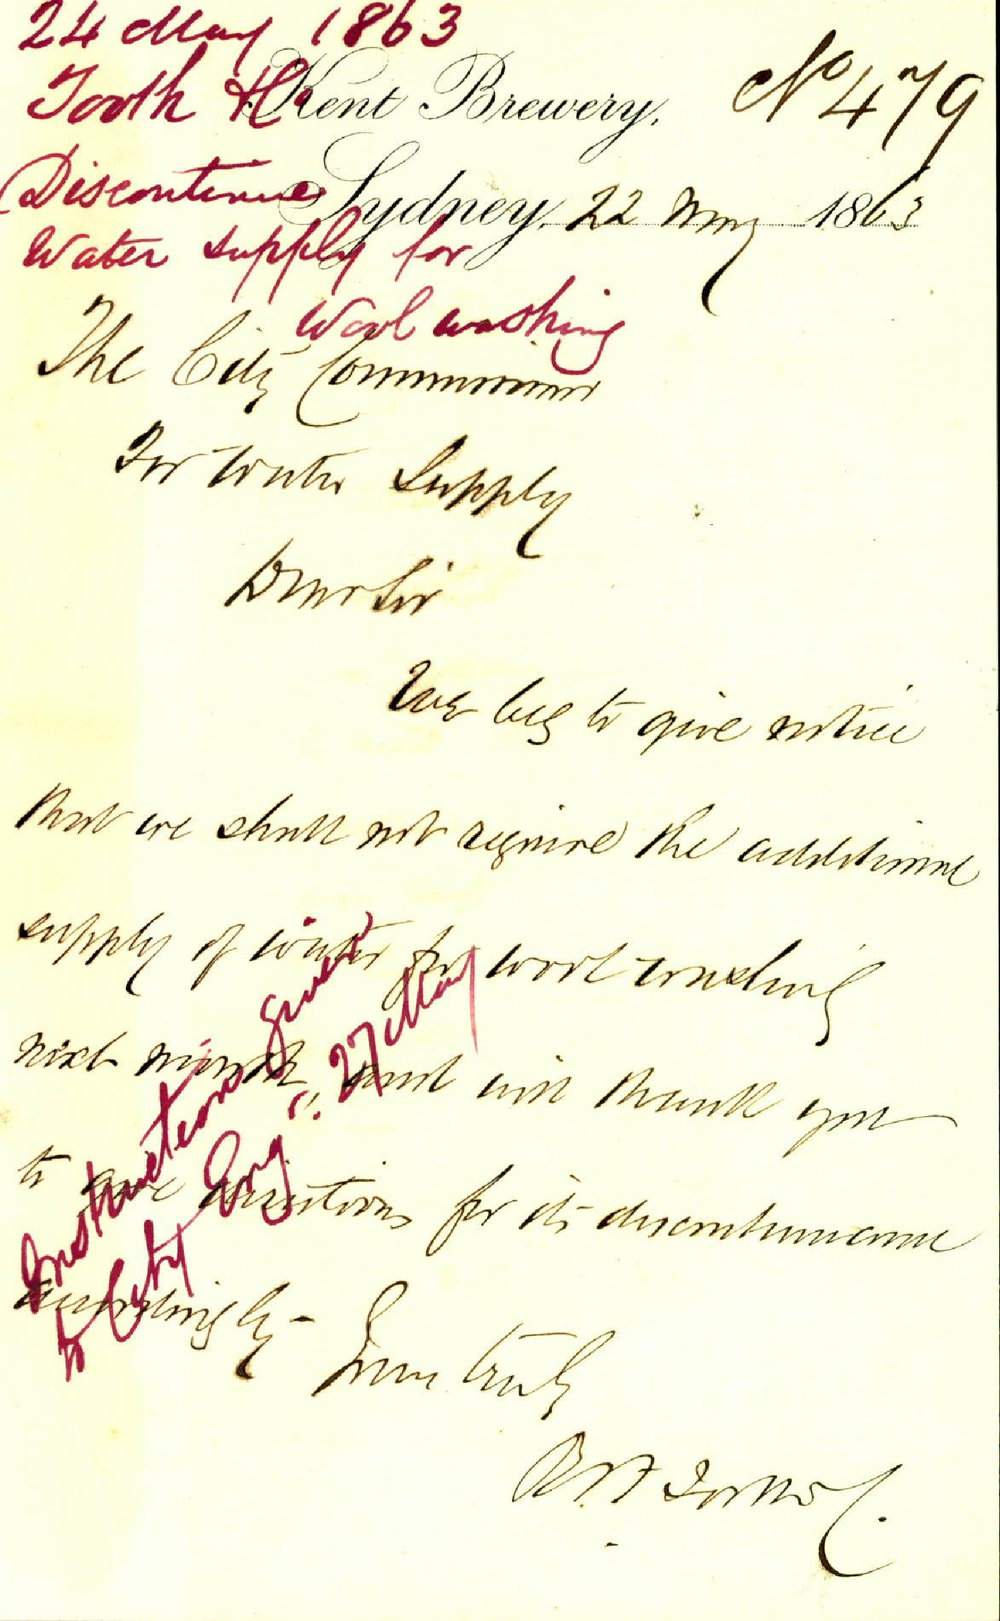 24 May 1863
Tooth H.
Kent Brewery.
No 479
Discontinue
Sydney. 22 May 1863
Water supply for
Wool washing
The City Commissioner
For Water Supply
Dear Sir
We beg to give notice
that we shall not require the additional
supply of water for wool washing
next month and will thank you
to give directions for its discontinuance
accordingly -
Yours truly
R & F Tooth & C.
Instructions given
to City Eng ". 27 May